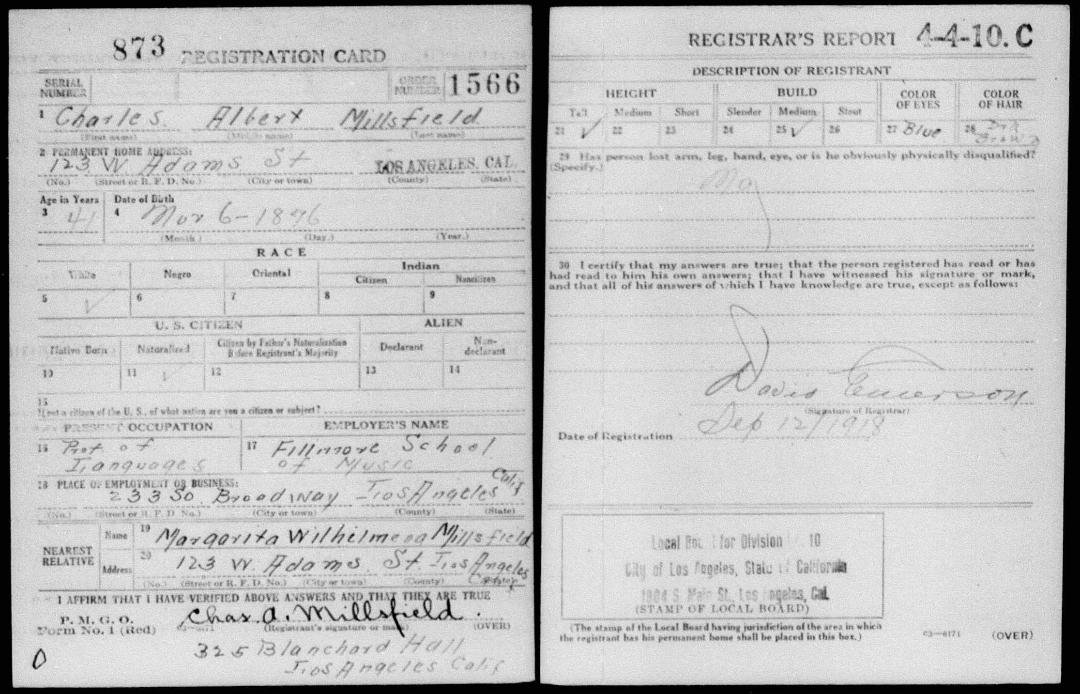 873 REGISTRATION CARD
SERIAL NUMBER ORDER NUMBER 1566
1 Charles Albert Millsfield
(First name) (Middle name) (Last name)
2 PERMANENT HOME ADDRESS:
123 W. Adams St LOS ANGELES, CAL.
(No.) (Street or R. F. D. No.) (City or town) (County) (State)
Age in Years Date of Birth
3 41 4 Mar 6-1876
(Month.) (Day.) (Year.)
RACE
White Negro Oriental Indian
Citizen Noncitizen
5 ✓ 6 7 8 9
U. S. CITIZEN ALIEN
Native Born Naturalized Citizen by Father's Naturalization Before Registrant's Majority Declarant Non-declarant
10 11 ✓ 12 13 14
15
If not a citizen of the U. S., of what nation are you a citizen or subject?
PRESENT OCCUPATION EMPLOYER'S NAME
16 Prof of Languages 17 Fillmore School of Music
18 PLACE OF EMPLOYMENT OR BUSINESS:
233 So. Broadway Los Angeles Calif
(No.) (Street or R. F. D. No.) (City or town) (County) (State)
NEAREST RELATIVE
Name 19 Margarita Wilhilmena Millsfield
Address 20 123 W. Adams St. Los Angeles
(No.) (Street or R. F. D. No.) (City or town) (County)
I AFFIRM THAT I HAVE VERIFIED ABOVE ANSWERS AND THAT THEY ARE TRUE
P. M. G. O.
Form No. 1 (Red) 03—6171 Chas. A. Millsfield.
(Registrant's signature or mark) (OVER)
325 Blanchard Hall
Los Angeles Calif
REGISTRAR'S REPORT 4-4-10. C
DESCRIPTION OF REGISTRANT
HEIGHT BUILD COLOR OF EYES COLOR OF HAIR
Tall Medium Short Slender Medium Stout
21 ✓ 22 23 24 25 ✓ 26 27 Blue 28 Drk Brown
29 Has person lost arm, leg, hand, eye, or is he obviously physically disqualified?
(Specify.)
30 I certify that my answers are true; that the person registered has read or has
had read to him his own answers; that I have witnessed his signature or mark,
and that all of his answers of which I have knowledge are true, except as follows:
Davis Emerson
(Signature of Registrar)
Date of Registration Sep 12/1918
Local Board for Division 10
City of Los Angeles, State of California
1904 S. Main St., Los Angeles, Cal.
(STAMP OF LOCAL BOARD)
(The stamp of the Local Board having jurisdiction of the area in which
the registrant has his permanent home shall be placed in this box.)
03—6171 (OVER)